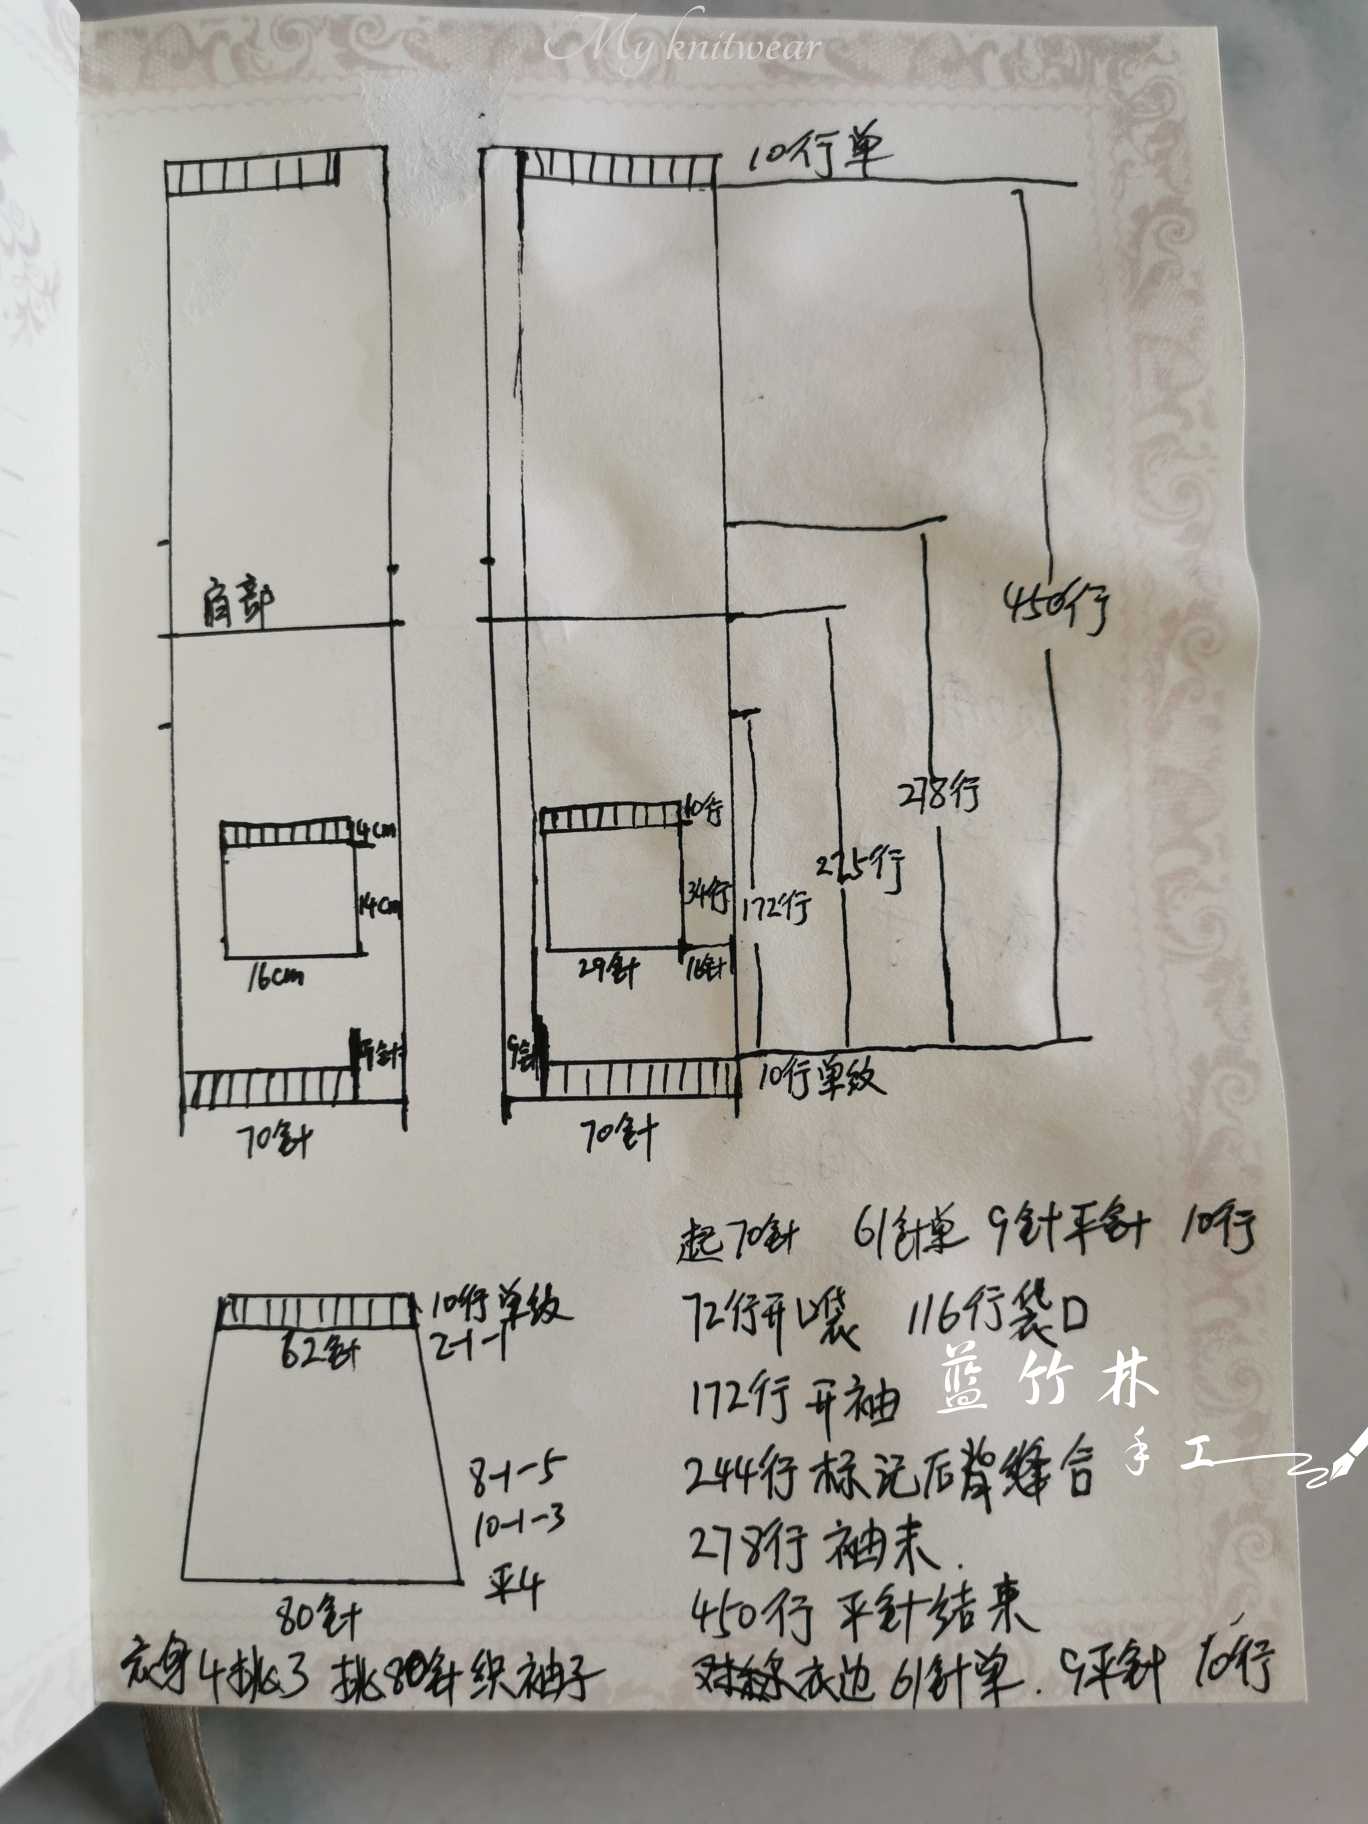 My knitwear
10行单
肩部
450行
278行
225行
172行
4cm
14cm
16cm
10行
34行
29针
16针
9针
9针
10行单纹
70针
70针
起70针 61针单 9针平针 10行
72行开口袋 116行袋口
172行开袖
244行标记后背缝合
278行袖末.
450行平针结束
对称衣边61针单. 9平针 10行
10行单纹
62针
2-1-1
8-1-5
10-1-3
平4
80针
衣身4挑3 挑80针织袖子
蓝竹林
手工